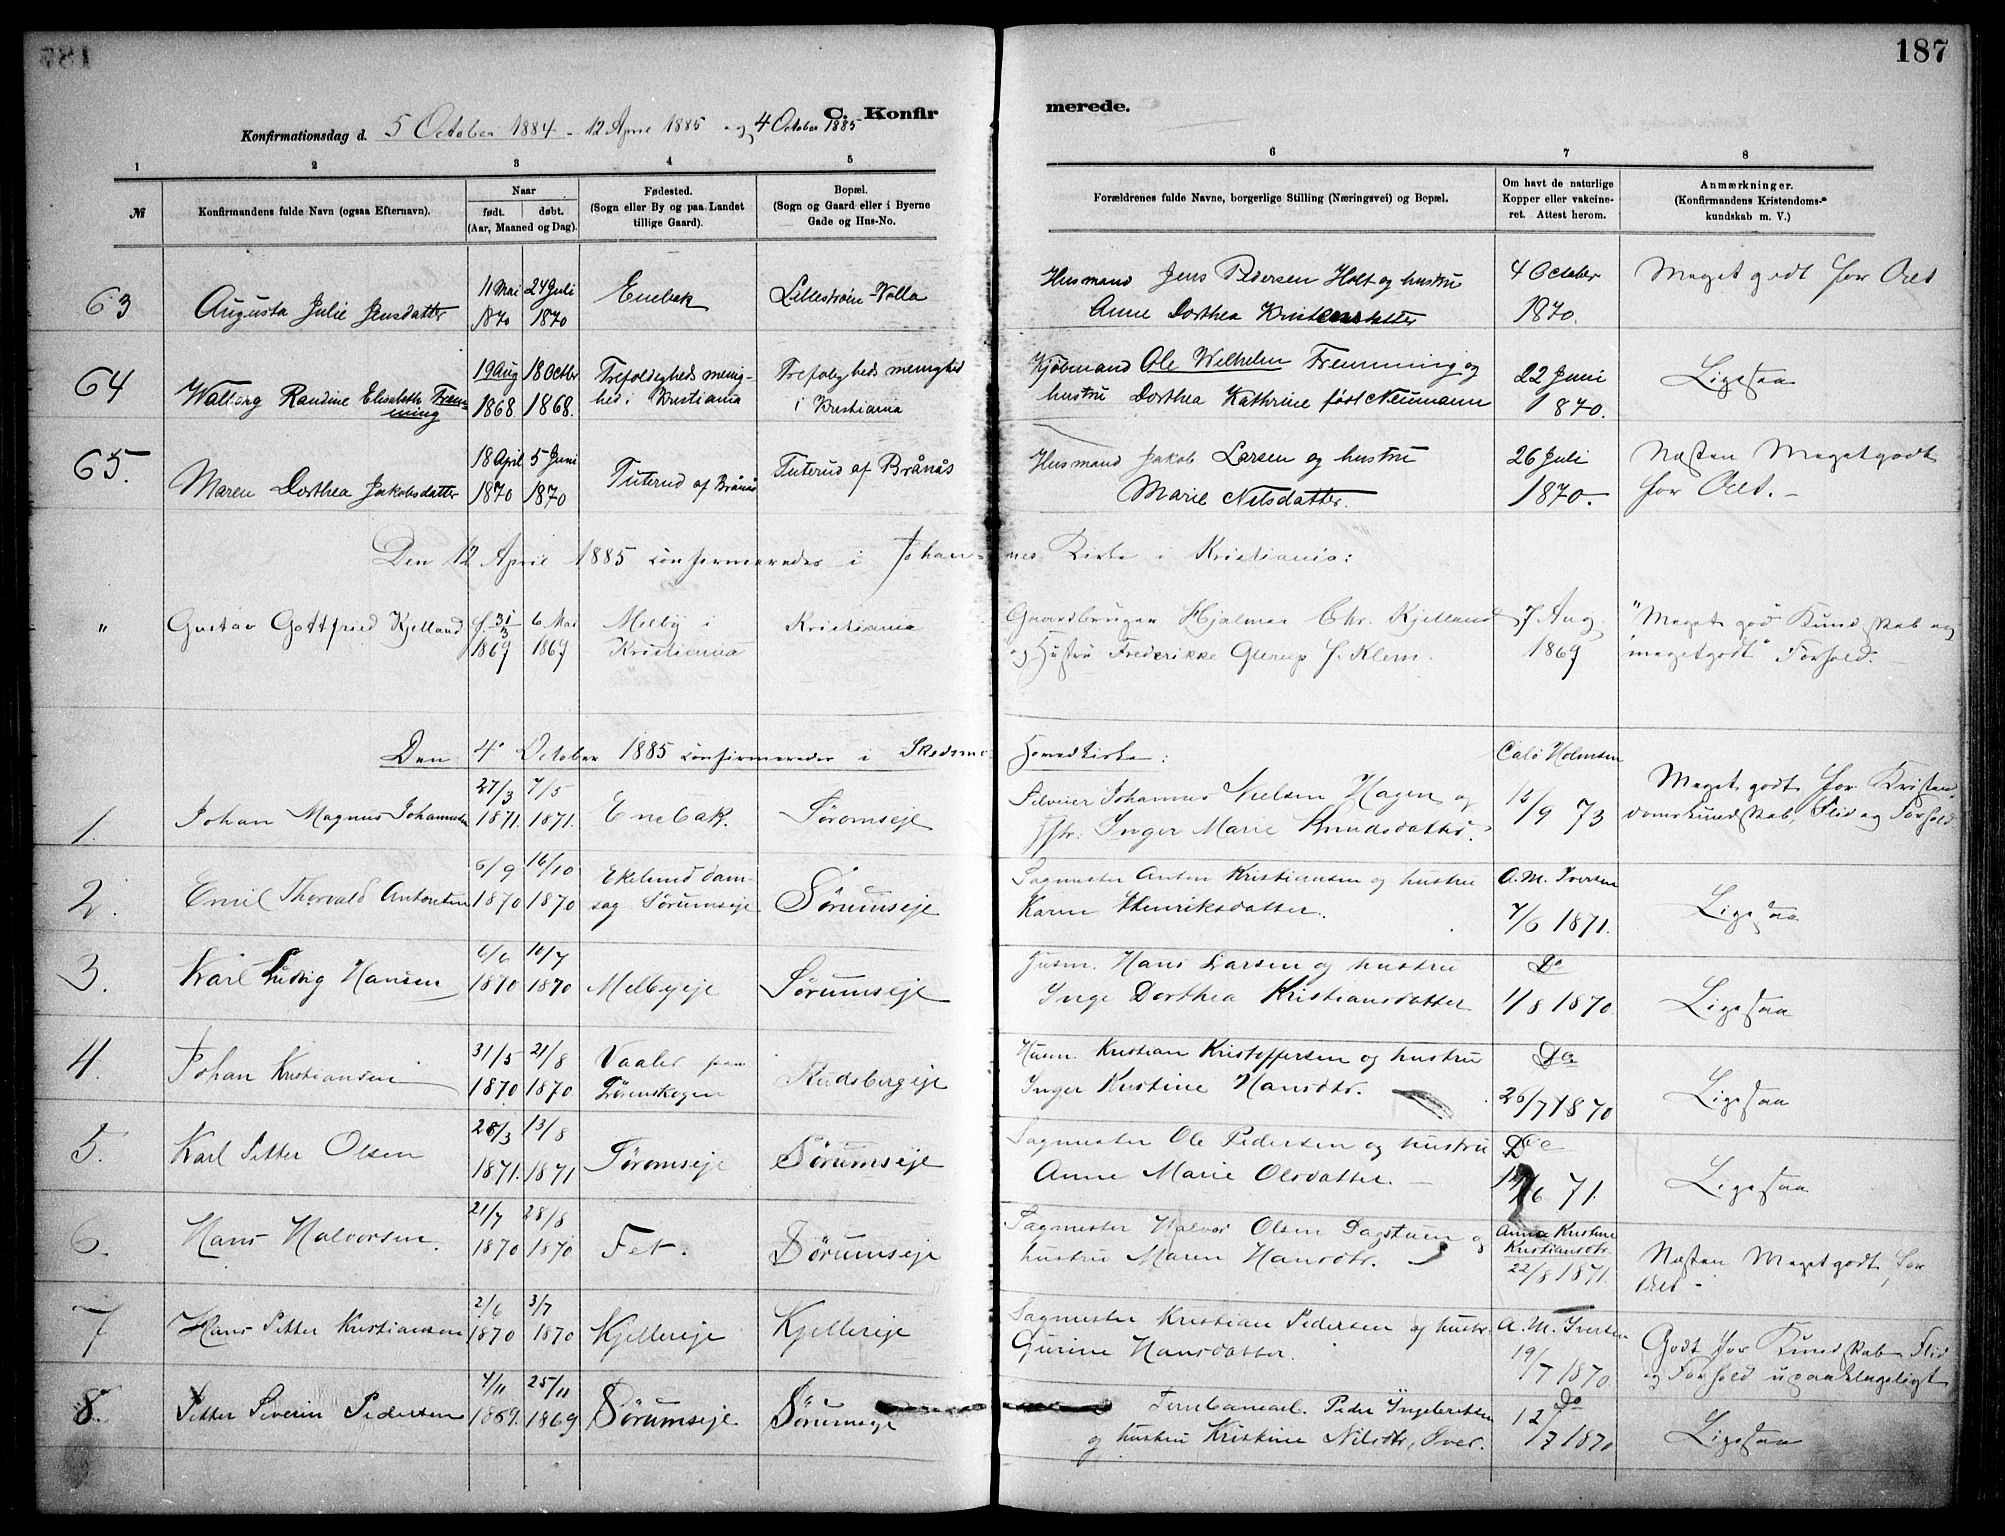 187
C. Konfir
merede.
Konfirmationsdag d. 5 October 1884 - 12 April 1885 og 4 October 1885
1 2 3 4 5 6 7 8
№
Konfirmandens fulde Navn (ogsaa Efternavn).
Naar
født. døbt.
(Aar, Maaned og Dag).
Fødested.
(Sogn eller By og paa Landet
tillige Gaard).
Bopæl.
(Sogn og Gaard eller i Byerne
Gade og Hus-No.
Forældrenes fulde Navne, borgerlige Stilling (Næringsvei) og Bopæl.
Om havt de naturlige
Kopper eller vakcine-
ret. Attest herom.
Anmærkninger.
(Konfirmandens Kristendoms-
kundskab m. V.)
63 Augusta Julie Jensdatter
11 Mai 1870
24 Juli 1870
Enebak
Lillestrøm-Volla
Husmand Jens Pedersen Holt og hustru
Anne Dorthea Kristensdatter
4 October
1870.
Meget godt for Alt
64 Walborg Randine Elisabeth Frem-
ming
19 Aug 1868
18 Octbr 1868.
Trefoldigheds menig-
hed i Kristiania
Trefoligheds menighed
i Kristiania
Kjøbmand Ole Wilhelm Fremming og
hustru Dorthea Kathrine født Neumann
22 Juni
1870.
Ligesaa
65. Maren Dorthea Jakobsdatter
18 April 1870
5 Juni 1870
Tuterud af Brånås
Tuterud af Brånås
Husmand Jakob Larsen og hustru
Marie Nilsdatter.
26 Juli
1870.-
Næsten Meget godt
for Alt.-
Den 12 April 1885 confirmeredes i Johan-nes Kirke i Kristiania:
" Gustav Gottfried Kjelland
f. 31/3 1869
6 Mai 1869
Melby i
Kristiania
Kristiania
Gaardbruger Hjalmar Chr. Kjelland
og Hustru Frederikke Glerup f. Klem.
7 Aug.
1869
"Meget god" Kundskab og
"meget godt" Forhold.
Den 4de October 1885 confirmeredes i Skedsmo Hovedkirke:
1. Johan Magnus Johannesen
27/3 1871.
7/5 1871.
Enebak.
Sørumseje
Johannes Nielsen Hagen og
Hstr. Inger Marie Knudsdatter.
Holmsen
/9 73
Meget godt for Kristen-
domskundskab, Flid og Forhold
2. Emil Thorvald Antonsen
/9 1870
16/10 1870
Ekelund dam-
sag Sørumseje
Sørumseje
Sagmester Anton Kristiansen og hustru
Karen Henriksdatter.
A. M. Iversen
7/6 1871.
Ligesaa
3. Karl Ludvig Hansen
6/6 1870
/7 1870
Melbyeje
Sørumseje
Husm. Hans Larsen og hustru
Inge Dorthea Kristiansdatter
Do
1/8 1870.
Ligesaa
4. Johan Kristiansen
31/5 1870
21/8 1870.
Vaaler paa
Lørenskogen
Rudsbergeje
Husm. Kristian Kristoffersen og hustru
Inger Kristine Hansdtr.
Do
26/7 1870
Ligesaa
5. Karl Petter Olsen
28/3 1871.
13/8 1871
Sørumseje
Sørumseje
Sagmester Ole Pedersen og hustru
Anne Marie Olsdatter.-
Do
/6 71.
Ligesaa
6. Hans Halvorsen.
21/7 1870
28/8 1870
Fet.
Sørumseje
Sagmester Halvor Olsen Dagstuen og
hustru Maren Hansdtr.
Anne Kristine
Kristiansdtr.
22/8 1871.
Næsten Meget godt for
Alt -
7 Hans Petter Kristiansen
2/6 1870
3/7 1870
Kjellereje
Kjellereje
Sagmester Kristian Pedersen og hustr.
Gurine Hansdatter.
A. M. Iversen
19/7 1870.
Godt for Kundskab, Flid
og Forhold upaaklageligt
8. Petter Severin Pedersen
7/11 1869.
25/11 1869
Sørumseje
Sørumseje
Jernbanearb. Peder Ingebretsen
og hustru Kristine Nilsdtr,
Do
12/7 1870
Ligesaa